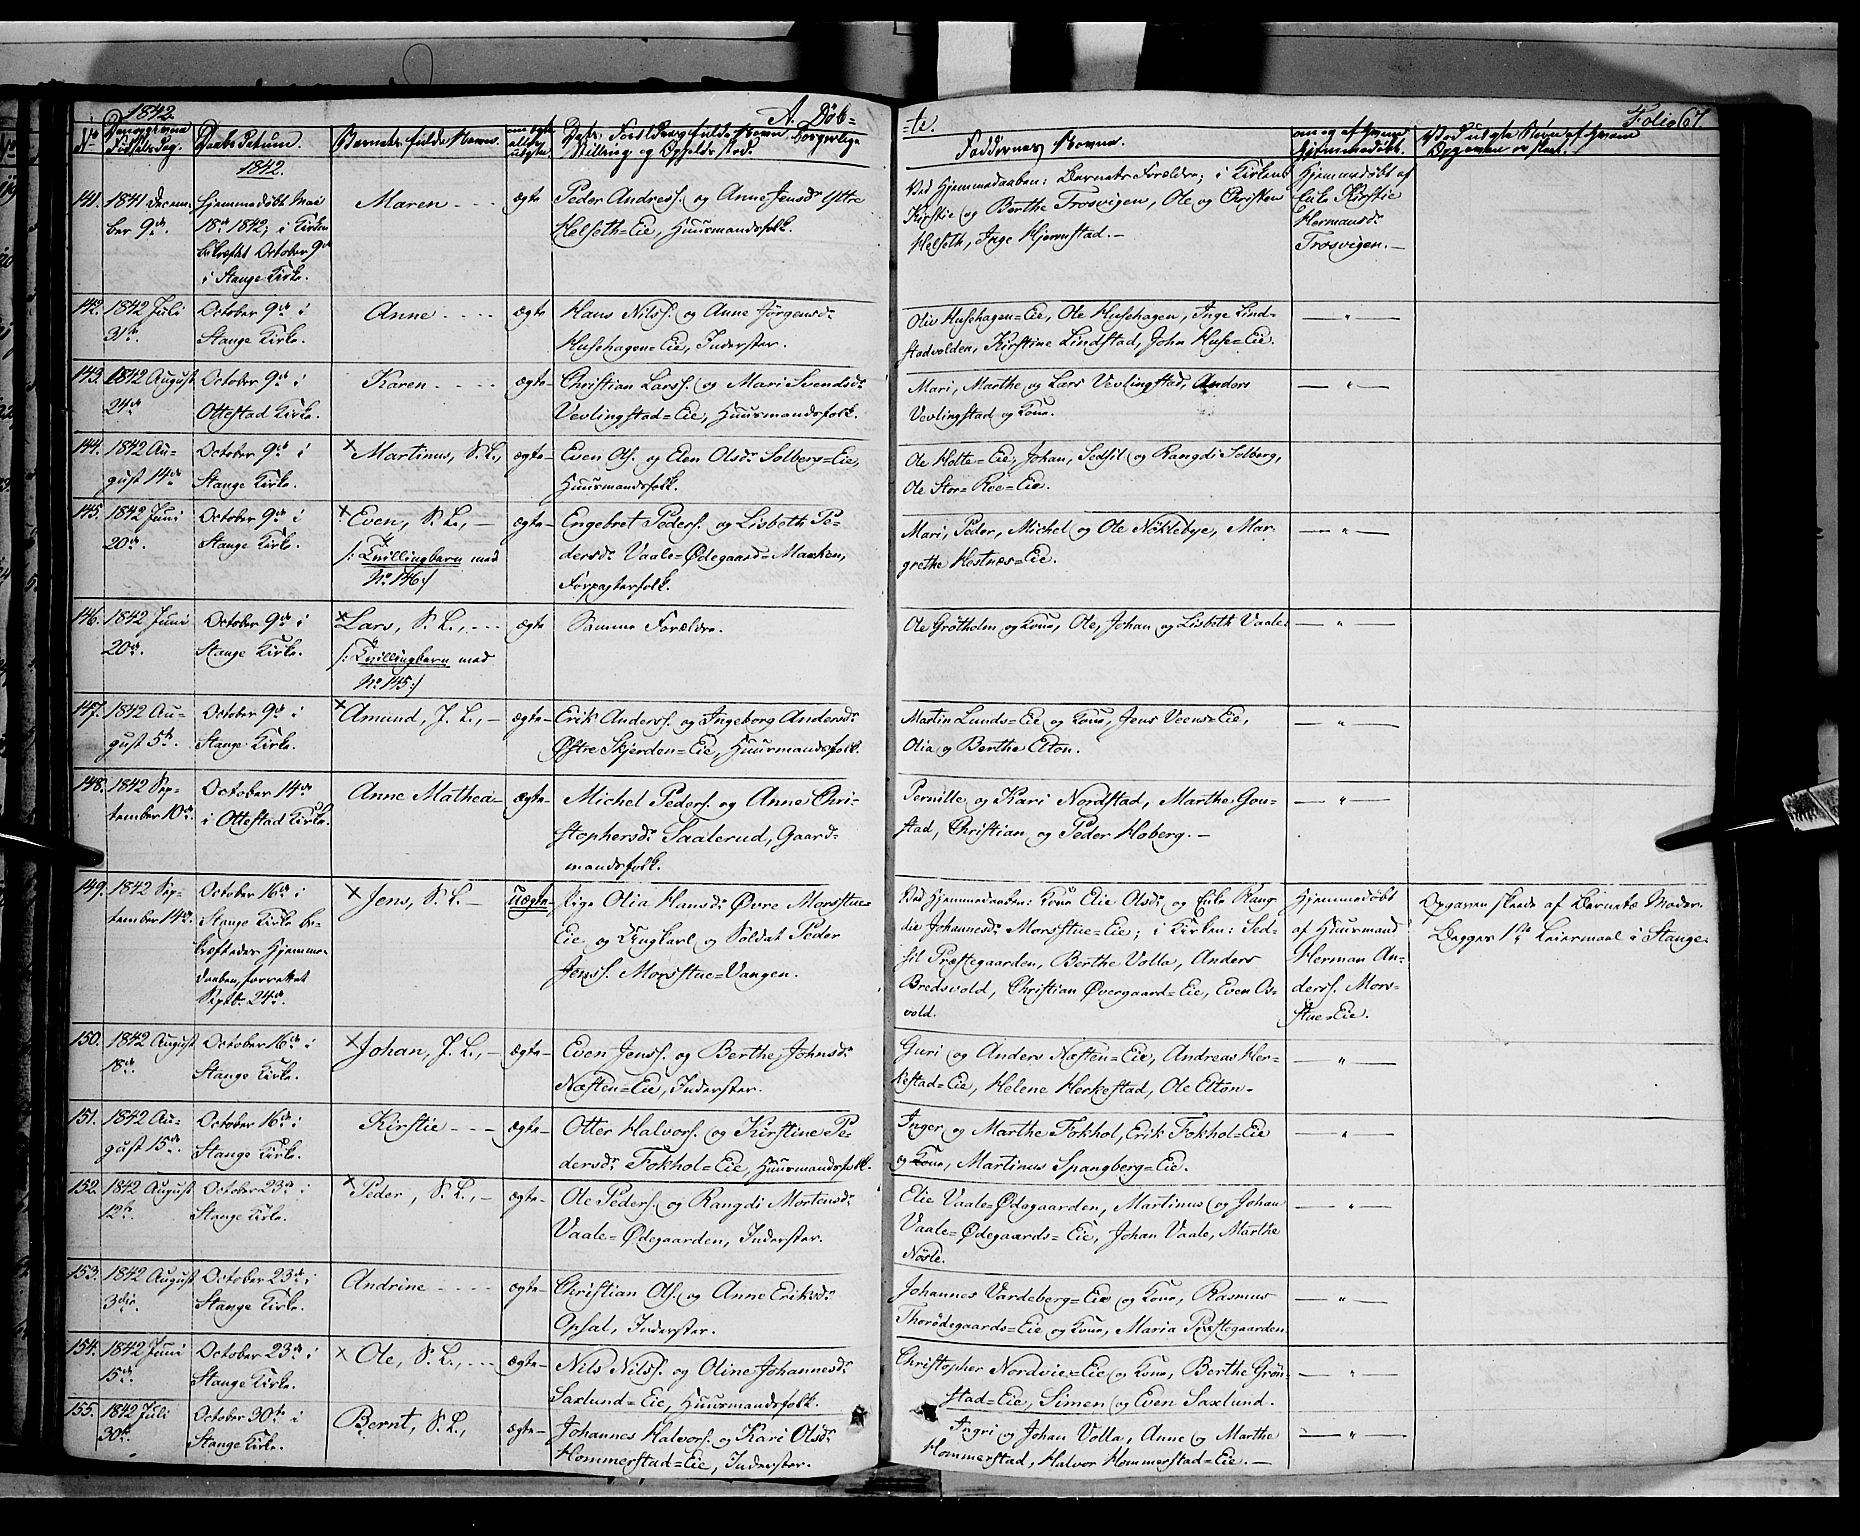 1842. A. Döb=
=te. Folio 67.
No Barnets fulde Navn.
Faddernes Navne.
1842.
141. 1841 Decem- Hjemmedöbt Mai Maren ægte Peder Anders. og Anne Jensdr Ystre Ved Hjemmedaaben: Barnets Forældre; i Kirken Hjemmedöbt af
ber 9de 18de 1842; i Kirken Helseth=Eie, Huusmandsfolk. Kirstie og Berthe Trosvigen, Ole og Christen Enke Kirstie
bekræftet October 9de Helseth, Inge Hjernstad. — Hermansdr
i Stange Kirke. Trosvigen. —
142. 1842 Juli October 9de i Anne ægte Hans Nilss. og Anne Jörgensdr Oliv Husehagen=Eie, Ole Husehagen, Inge Lind= — " —
31te Stange Kirke. Husehagen=Eie, Inderster. stadvolden, Kirstine Lindstad, John Huse=Eie.
143. 1842 August October 9de i Karen ægte- Christian Larss. og Mari Svendsdr Mari, Marthe og Lars Vevlingstad, Anders — " —
24de Ottestad Kirke. Vevlingstad=Eie, Huusmandsfolk. Vevlingstad og Kone.
144. 1842 Au- October 9de i × Martinus, S. L., ægte- Even Ols. og Elen Olsdr Solberg=Eie, Ole Holte=Eie, Johan, Sedsil og Rangdi Solberg,
gust 14de Stange Kirke. Huusmandsfolk. Ole Stor=Ree=Eie.
145. 1842 Juni October 9de i × Even, S. L., — ægte- Engebret Peders. og Lisbeth Pe- Mari, Peder, Michel og Ole Nöklebye, Mar- — " —
20de. Stange Kirke. /: Tvillingbarn med dersdr Vaale=Ødegaard=Marken, grethe Hestnæs=Eie.
No 146 :/ Forpagterfolk.
146. 1842 Juni October 9de i × Lars, S. L., ægte Samme Forældre. Ole Grötholen og Kone, Ole, Johan og Lisbeth Vaale. — " —
20de. Stange Kirke. /: Tvillingbarn med
No 145 :/
147. 1842 Au- October 9de i × Amund, J. L., — ægte- Erik Anderss. og Ingeborg Andersdr Martin Lunds=Eie og Kone, Jens Veens=Eie, — " —
gust 5te. Stange Kirke. Østre Skjerden=Eie, Huusmandsfolk. Olia og Berthe Elton.
148. 1842 Sep- October 14de Anne Mathea- ægte- Michel Peders. og Anne Chri- Pernille og Kari Nordstad, Marthe Gou- — " —
tember 10de. i Ottestad Kirke. stophersdr Saalerud, Gaard- stad, Christian og Peder Hoberg. —
mandsfolk.
149. 1842 Sep- October 16de i × Jens, S. L. — Uægte, Pige Olia Hansdr Øvre Morstue= Ved Hjemmedaaben: Kone Elie Olsdr og Enke Rang- Hjemmedöbt Opgaven skeede af Barnets Moder.
tember 14de. Stange Kirke be- Eie og Ungkarl og Soldat Peder die Johannesdr Morstue=Eie; i Kirken: Sed- af Huusmand Begges 1ste Leiermaal i Stange.
kræftedes Hjemme- Jenss. Morstue=Vangen. sil Præstegaarden, Berthe Volla, Anders Herman An-
daaben, forrettet Bredsvold, Christian Övergaard=Eie, Even Os- derss. Mors-
Septbr 24de. vold. tue=Eie.
150. 1842 August October 16de i × Johan, J. L., — ægte- Even Jenss. og Berthe Johnsdr Guri og Anders Næsten=Eie, Andreas Her- — " —
18de. Stange Kirke. Næsten=Eie, Inderster. kestad=Eie, Helene Herkestad, Ole Elton.
151. 1842 Au- October 16de i Kirstie ægte- Otter Halvors. og Kirstine Pe- Inger og Marthe Fokhol, Erik Fokhol=Eie — " —
gust 15de. Stange Kirke. dersdr Fokhol=Eie, Huusmandsfolk. og Kone, Martinus Spangberg=Eie.
152. 1842 August October 23de i × Peder, S. L., — ægte- Ole Peders. og Rangdi Mortensdr Elie Vaale=Ødegaarden, Martinus og Johan — " —
12te. Stange Kirke. Vaale=Ødegaarden, Inderster. Vaale=Ødegaards=Eie, Johan Vaale, Marthe
Nösle.
153. 1842 August October 23de i Andrine ægte- Christian Ols. og Anne Eriksdr Johannes Vardeberg=Eie og Kone, Rasmus — " —
3die. Stange Kirke. Opsal, Inderster. Thorödegaards=Eie og Kone, Maria Præstegaarden
154. 1842 Juni October 23de i × Ole, S. L., ægte- Nils Nilss. og Oline Johannesdr Christopher Nordvie=Eie og Kone, Berthe Grön- — " —
15de. Stange Kirke. Saxlund=Eie, Huusmandsfolk. stad=Eie, Simen og Even Saxlund.
155. 1842 Juli October 30te i Bernt, S. L., ægte- Johannes Halvors. og Kari Olsdr Ingri og Johan Volla, Anne og Marthe — " —
30te. Stange Kirke. Hommerstad=Eie, Inderster. Hommerstad, Halvor Hommerstad=Eie. —